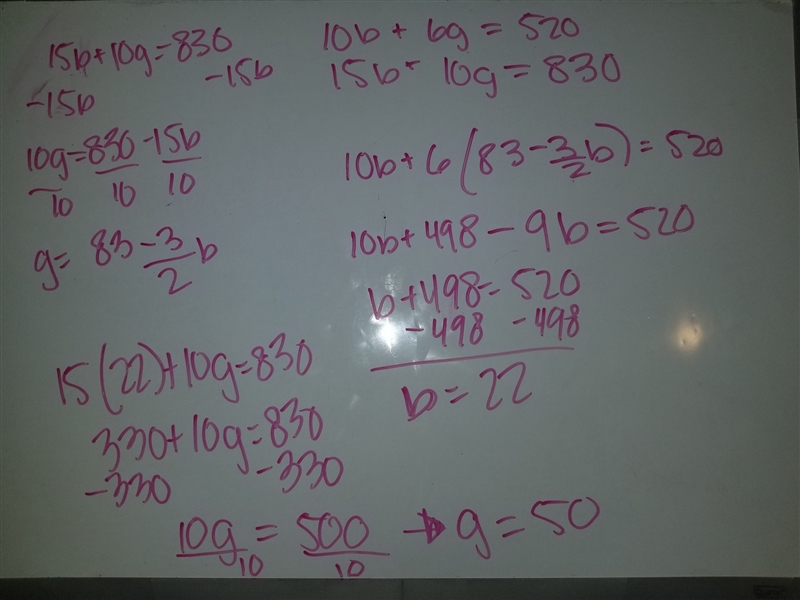 15b+10g=830
-15b -15b
10g=830-15b
10 10 10
g= 83-3/2 b
15(22)+10g=830
330+10g=830
-330 -330
10b+6g=520
15b- 10g=830
10b+6(83-3/2 b)=520
10b+498-9b=520
b+498=520
-498 -498
b=22
10g = 500 → g=50
10 10